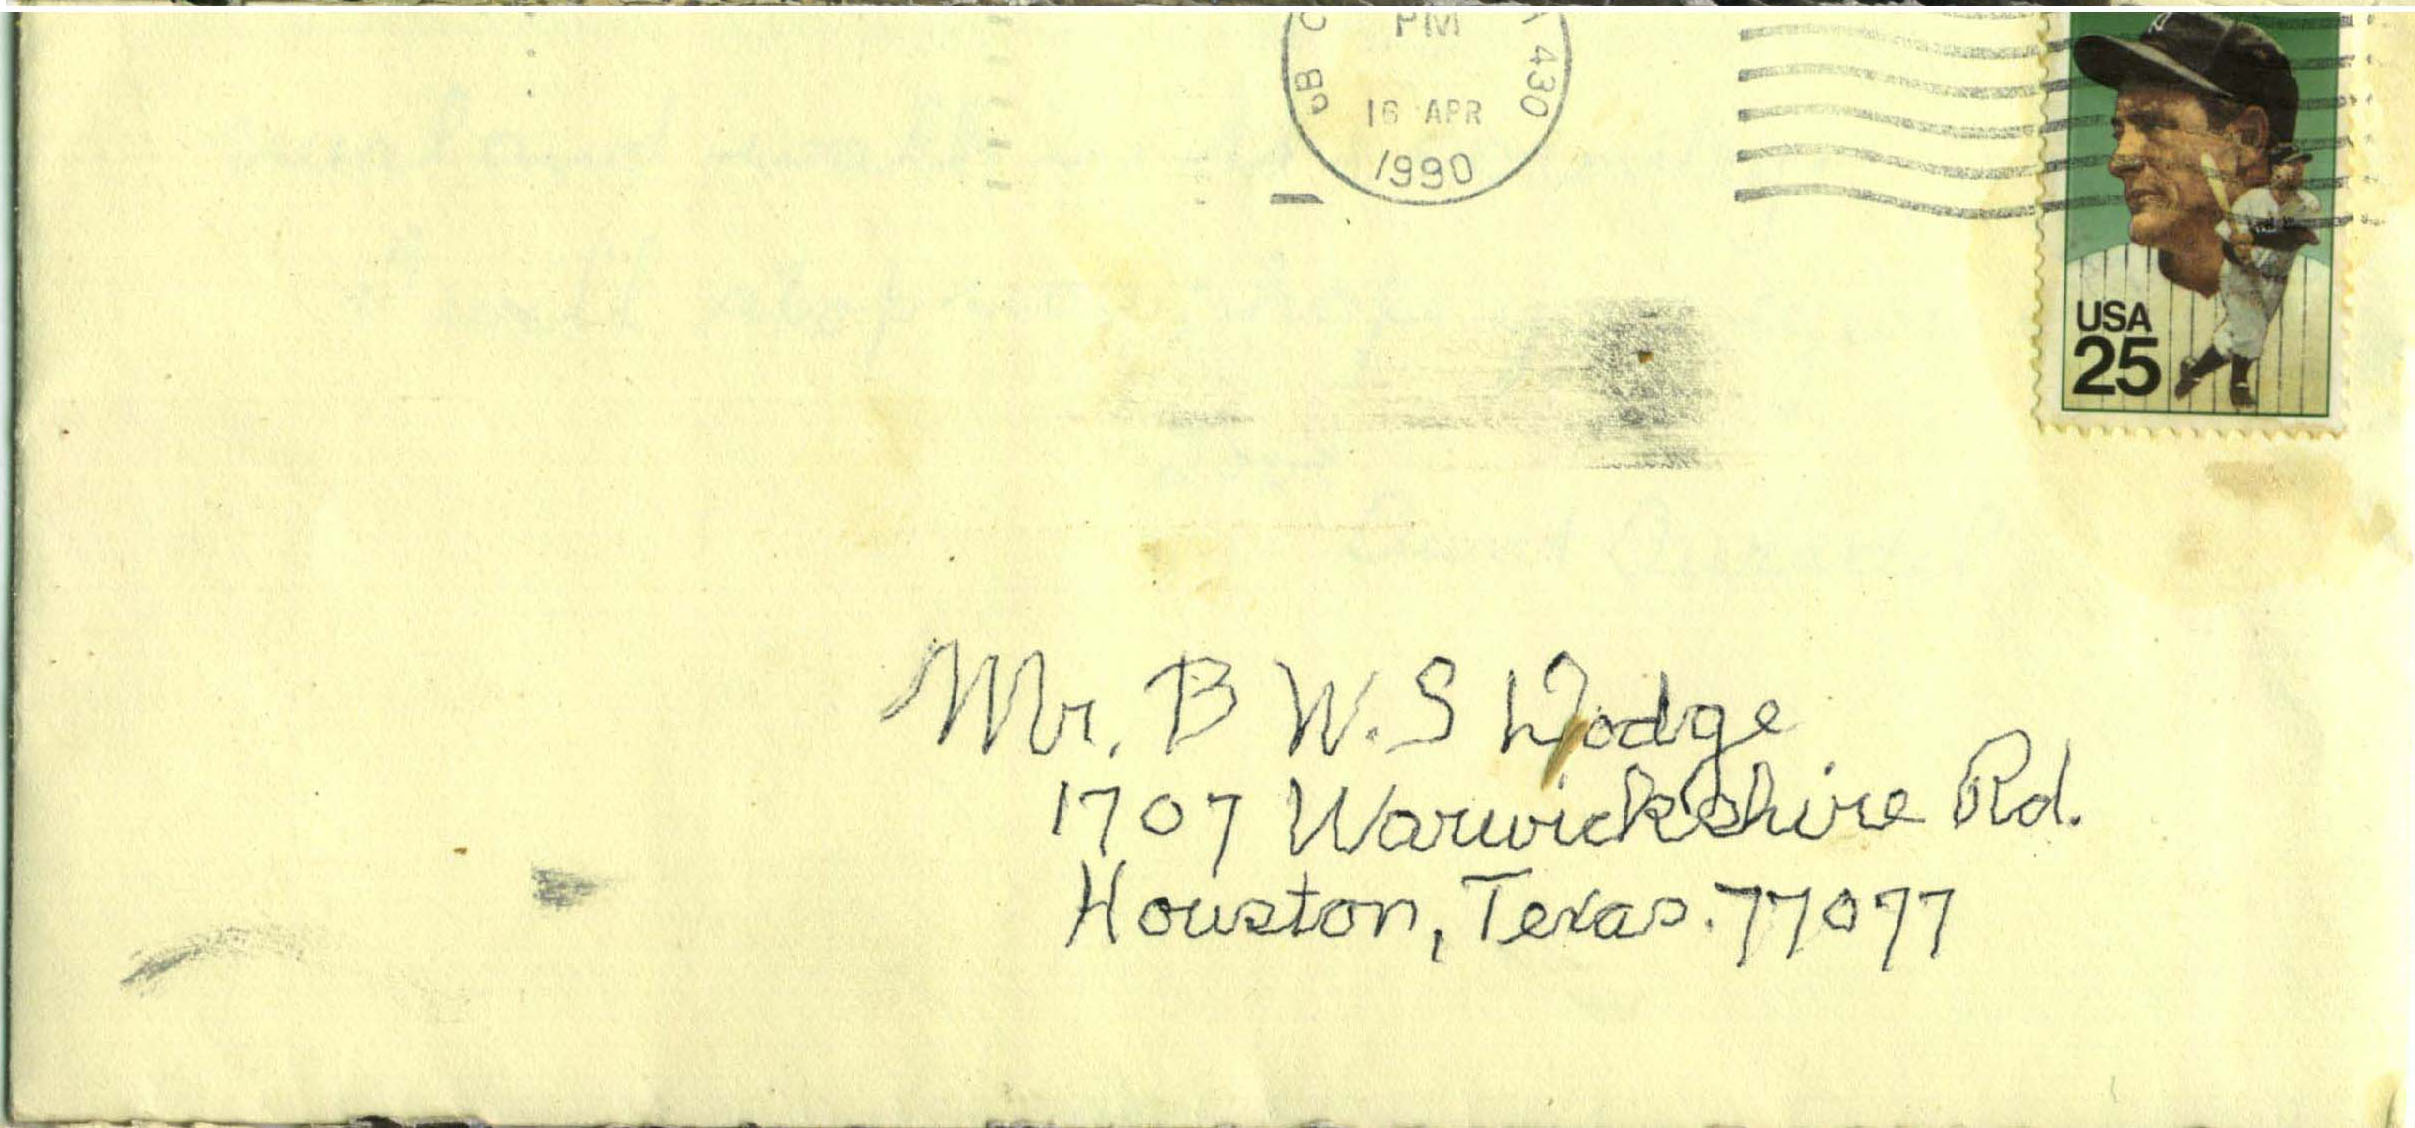 PM
430
16 APR
1990
USA
25
Mr. B W. S Dodge
1707 Warwickshire Rd.
Houston, Texas. 77077